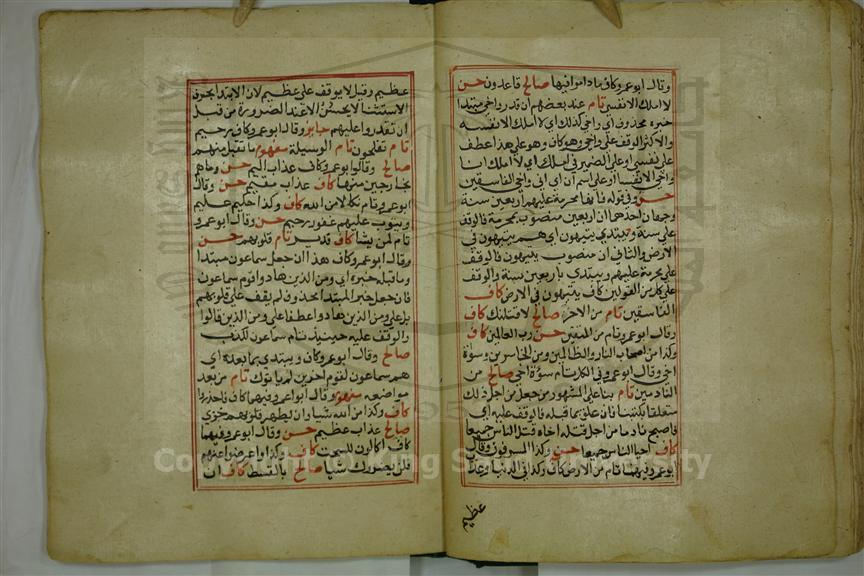 وقال ابو عمرو كاف ما داموا فيها صالح قاعدون حسن
لا املك الا نفسي تام عند بعضهم ان قدر واخي مبتدا
خبره محذوف اي واخي كذلك اي لا املك الا نفسه
والاكثر الوقف على واخي وهو كاف وهو على هذا عطف
على نفسي او على الضمير في املك اي لا املك انا
واخي الا انفسنا او على اسم ان اي اني واخي الفاسقين
حسن وفي قوله فانها محرمة عليهم اربعين سنة
وجهان احدهما ان اربعين منصوب بمحرمة فالوقف
على سنة ويبتدي يتيهون اي هم يتيهون في
الارض والثاني ان منصوب يتيهون فالوقف
على محرمة عليهم ويبتدي باربعين سنة والوقف
على كل من القولين كاف يتيهون في الارض كاف
الفاسقين تام من الاخر صالح لاقتلنك كاف
وقال ابو عمرو تام من المتقين حسن رب العالمين كاف
وكذا من اصحاب النار والظالمين ومن الخاسرين وسوءة
اخي وقال ابو عمرو في الكل تام سوءة اخي صالح من
النادمين تام بنا على المشهور من جعل من اجل ذلك
متعلقا بكتبنا فان علق بما قبله فالوقف عليه اي
فاصبح نادما من اجل قتله اخاه قتل الناس جميعا
كاف احيا الناس جميعا حسن وكذا لمسرفون وقال
ابو عمرو فيهما تام من الارض كاف وكذا في الدنيا وعذاب
عظيم
عظيم وقيل لا يوقف على عظيم لان الابتدا بحرف
الاستثنا لا يحسن الا عند الضرورة من قبل
ان تقدروا عليهم جايز وقال ابو عمرو كاف رحيم
تام تفلحون تام الوسيلة مفهوم ما تقبل منهم
صالح وقال ابو عمرو كاف عذاب اليم حسن وما هم
بخارجين منها كاف عذاب مقيم حسن وقال
ابو عمرو تام نكالا من الله كاف وكذا حكيم عليم
ويتوب عليهم غفور رحيم حسن وقال ابو عمرو
تام لمن يشا كاف قدير تام قلوبهم حسن
وقال ابو عمرو كاف هذا ان جعل سماعون مبتدا
وما قبله خبره اي ومن الذين هادوا قوم سماعون
فان جعل خبر المبتدا محذوف لم يقف على قلوبهم
بل على ومن الذين هادوا عطفا على ومن الذين قالوا
والوقف عليه حينيذ تام سماعون للكذب
صالح وقال ابو عمرو كاف ويبتدي بما بعده اي
هم سماعون لقوم اخرين لم ياتوك تام من بعد
مواضعه مفهوم وقال ابو عمرو فيهما كاف فاحذروا
كاف وكذا من الله شيا ان يطهر قلوبهم خزي
صالح عذاب عظيم حسن وقال ابو عمرو فيهما
كاف اكالون للسحت كاف وكذا او اعرض عنهم
فلن يضروك شيا صالح بالقسط كاف ان
Copyright © King Saud University